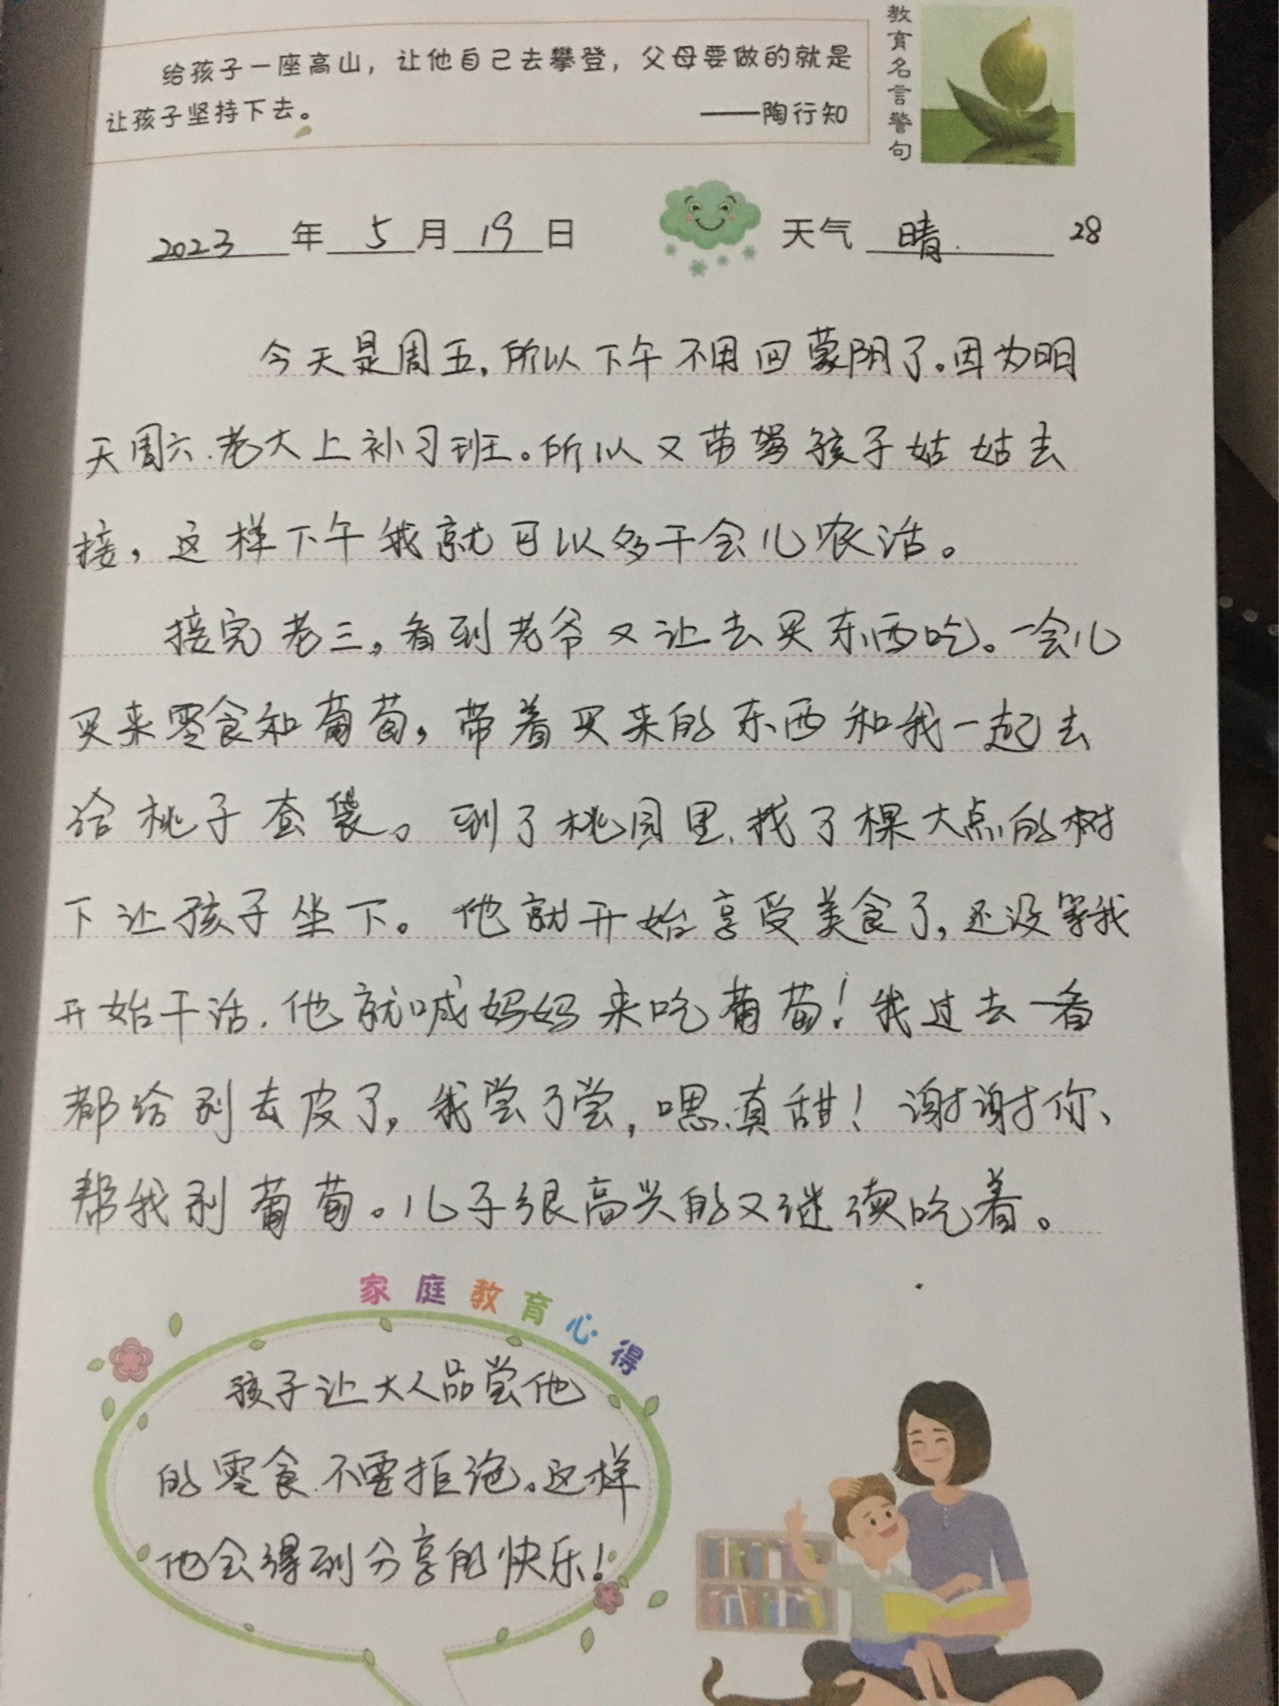 给孩子一座高山，让他自己去攀登，父母要做的就是
让孩子坚持下去。 ——陶行知
教育名言警句
2023年5月19日 天气 晴. 28
今天是周五，所以下午不用回蒙阴了。因为明
天周六.老大上补习班。所以又带驾孩子姑姑去
接，这样下午我就可以多干会儿农活。
接完老三，看到老爷又让去买东西吃。一会儿
买来零食和葡萄，带着买来的东西和我一起去
给桃子套袋。到了桃园里，找了棵大点的树
下让孩子坐下。他就开始享受美食了，还没等我
开始干活，他就喊妈妈来吃葡萄！我过去一看
都给剥去皮了，我尝了尝，嗯，真甜！谢谢你、
帮我剥葡萄。儿子很高兴的又继续吃着。
家庭教育心得
孩子让大人品尝他
的零食.不要拒绝。这样
他会得到分享的快乐！